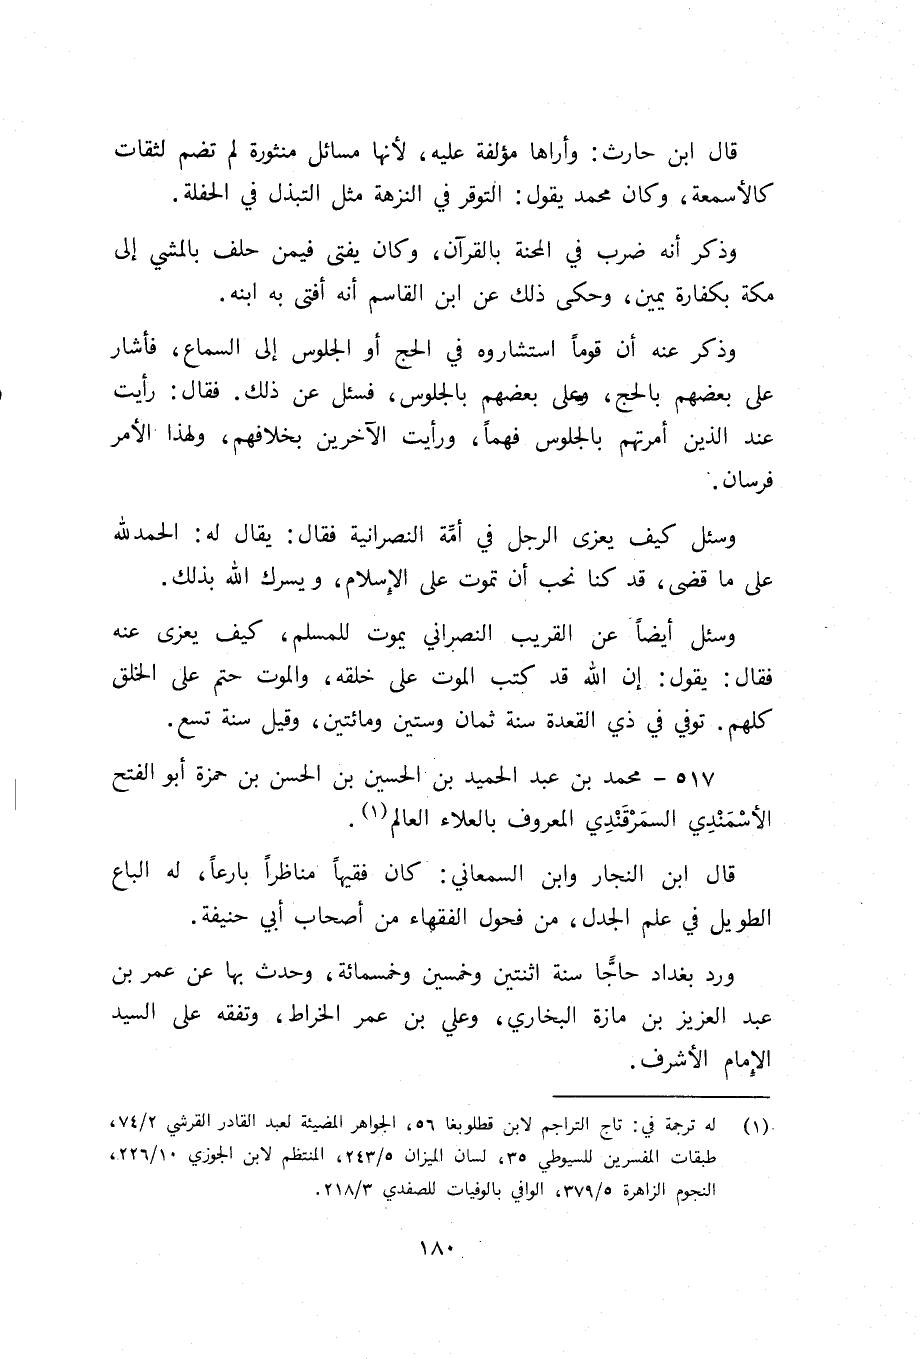 قال ابن حارث: وأراها مؤلفة عليه، لأنها مسائل منثورة لم تضم لثقات
كالأسمعة، وكان محمد يقول: التوقر في النزهة مثل التبذل في الحفلة.
وذكر أنه ضرب في المحنة بالقرآن، وكان يفتى فيمن حلف بالمشي إلى
مكة بكفارة يمين، وحكى ذلك عن ابن القاسم أنه أفتى به ابنه.
وذكر عنه أن قوماً استشاروه في الحج أو الجلوس إلى السماع، فأشار
على بعضهم بالحج، وعلى بعضهم بالجلوس، فسئل عن ذلك. فقال: رأيت
عند الذين أمرتهم بالجلوس فهماً، ورأيت الآخرين بخلافهم، ولهذا الأمر
فرسان.
وسئل كيف يعزى الرجل في أمِّة النصرانية فقال: يقال له: الحمدلله
على ما قضى، قد كنا نحب أن تموت على الإسلام، ويسرك الله بذلك.
وسئل أيضاً عن القريب النصراني يموت للمسلم، كيف يعزى عنه
فقال: يقول: إن الله قد كتب الموت على خلقه، والموت حتم على الخلق
كلهم. توفي في ذي القعدة سنة ثمان وستين ومائتين، وقيل سنة تسع.
٥١٧ - محمد بن عبد الحميد بن الحسين بن الحسن بن حمزة أبو الفتح
الأسْمَنْدِي السمَرْقَنْدِي المعروف بالعلاء العالم(١).
قال ابن النجار وابن السمعاني: كان فقيهاً مناظراً بارعاً، له الباع
الطويل في علم الجدل، من فحول الفقهاء من أصحاب أبي حنيفة.
ورد بغداد حاجًّا سنة اثنتين وخمسين وخمسمائة، وحدث بها عن عمر بن
عبد العزيز بن مازة البخاري، وعلي بن عمر الخراط، وتفقه على السيد
الإمام الأشرف.
(١) له ترجمة في: تاج التراجم لابن قطلوبغا ٥٦، الجواهر المضيئة لعبد القادر القرشي ٧٤/٢،
طبقات المفسرين للسيوطي ٣٥، لسان الميزان ٢٤٣/٥، المنتظم لابن الجوزي ٢٢٦/١٠،
النجوم الزاهرة ٣٧٩/٥، الوافي بالوفيات للصفدي ٢١٨/٣.
١٨٠